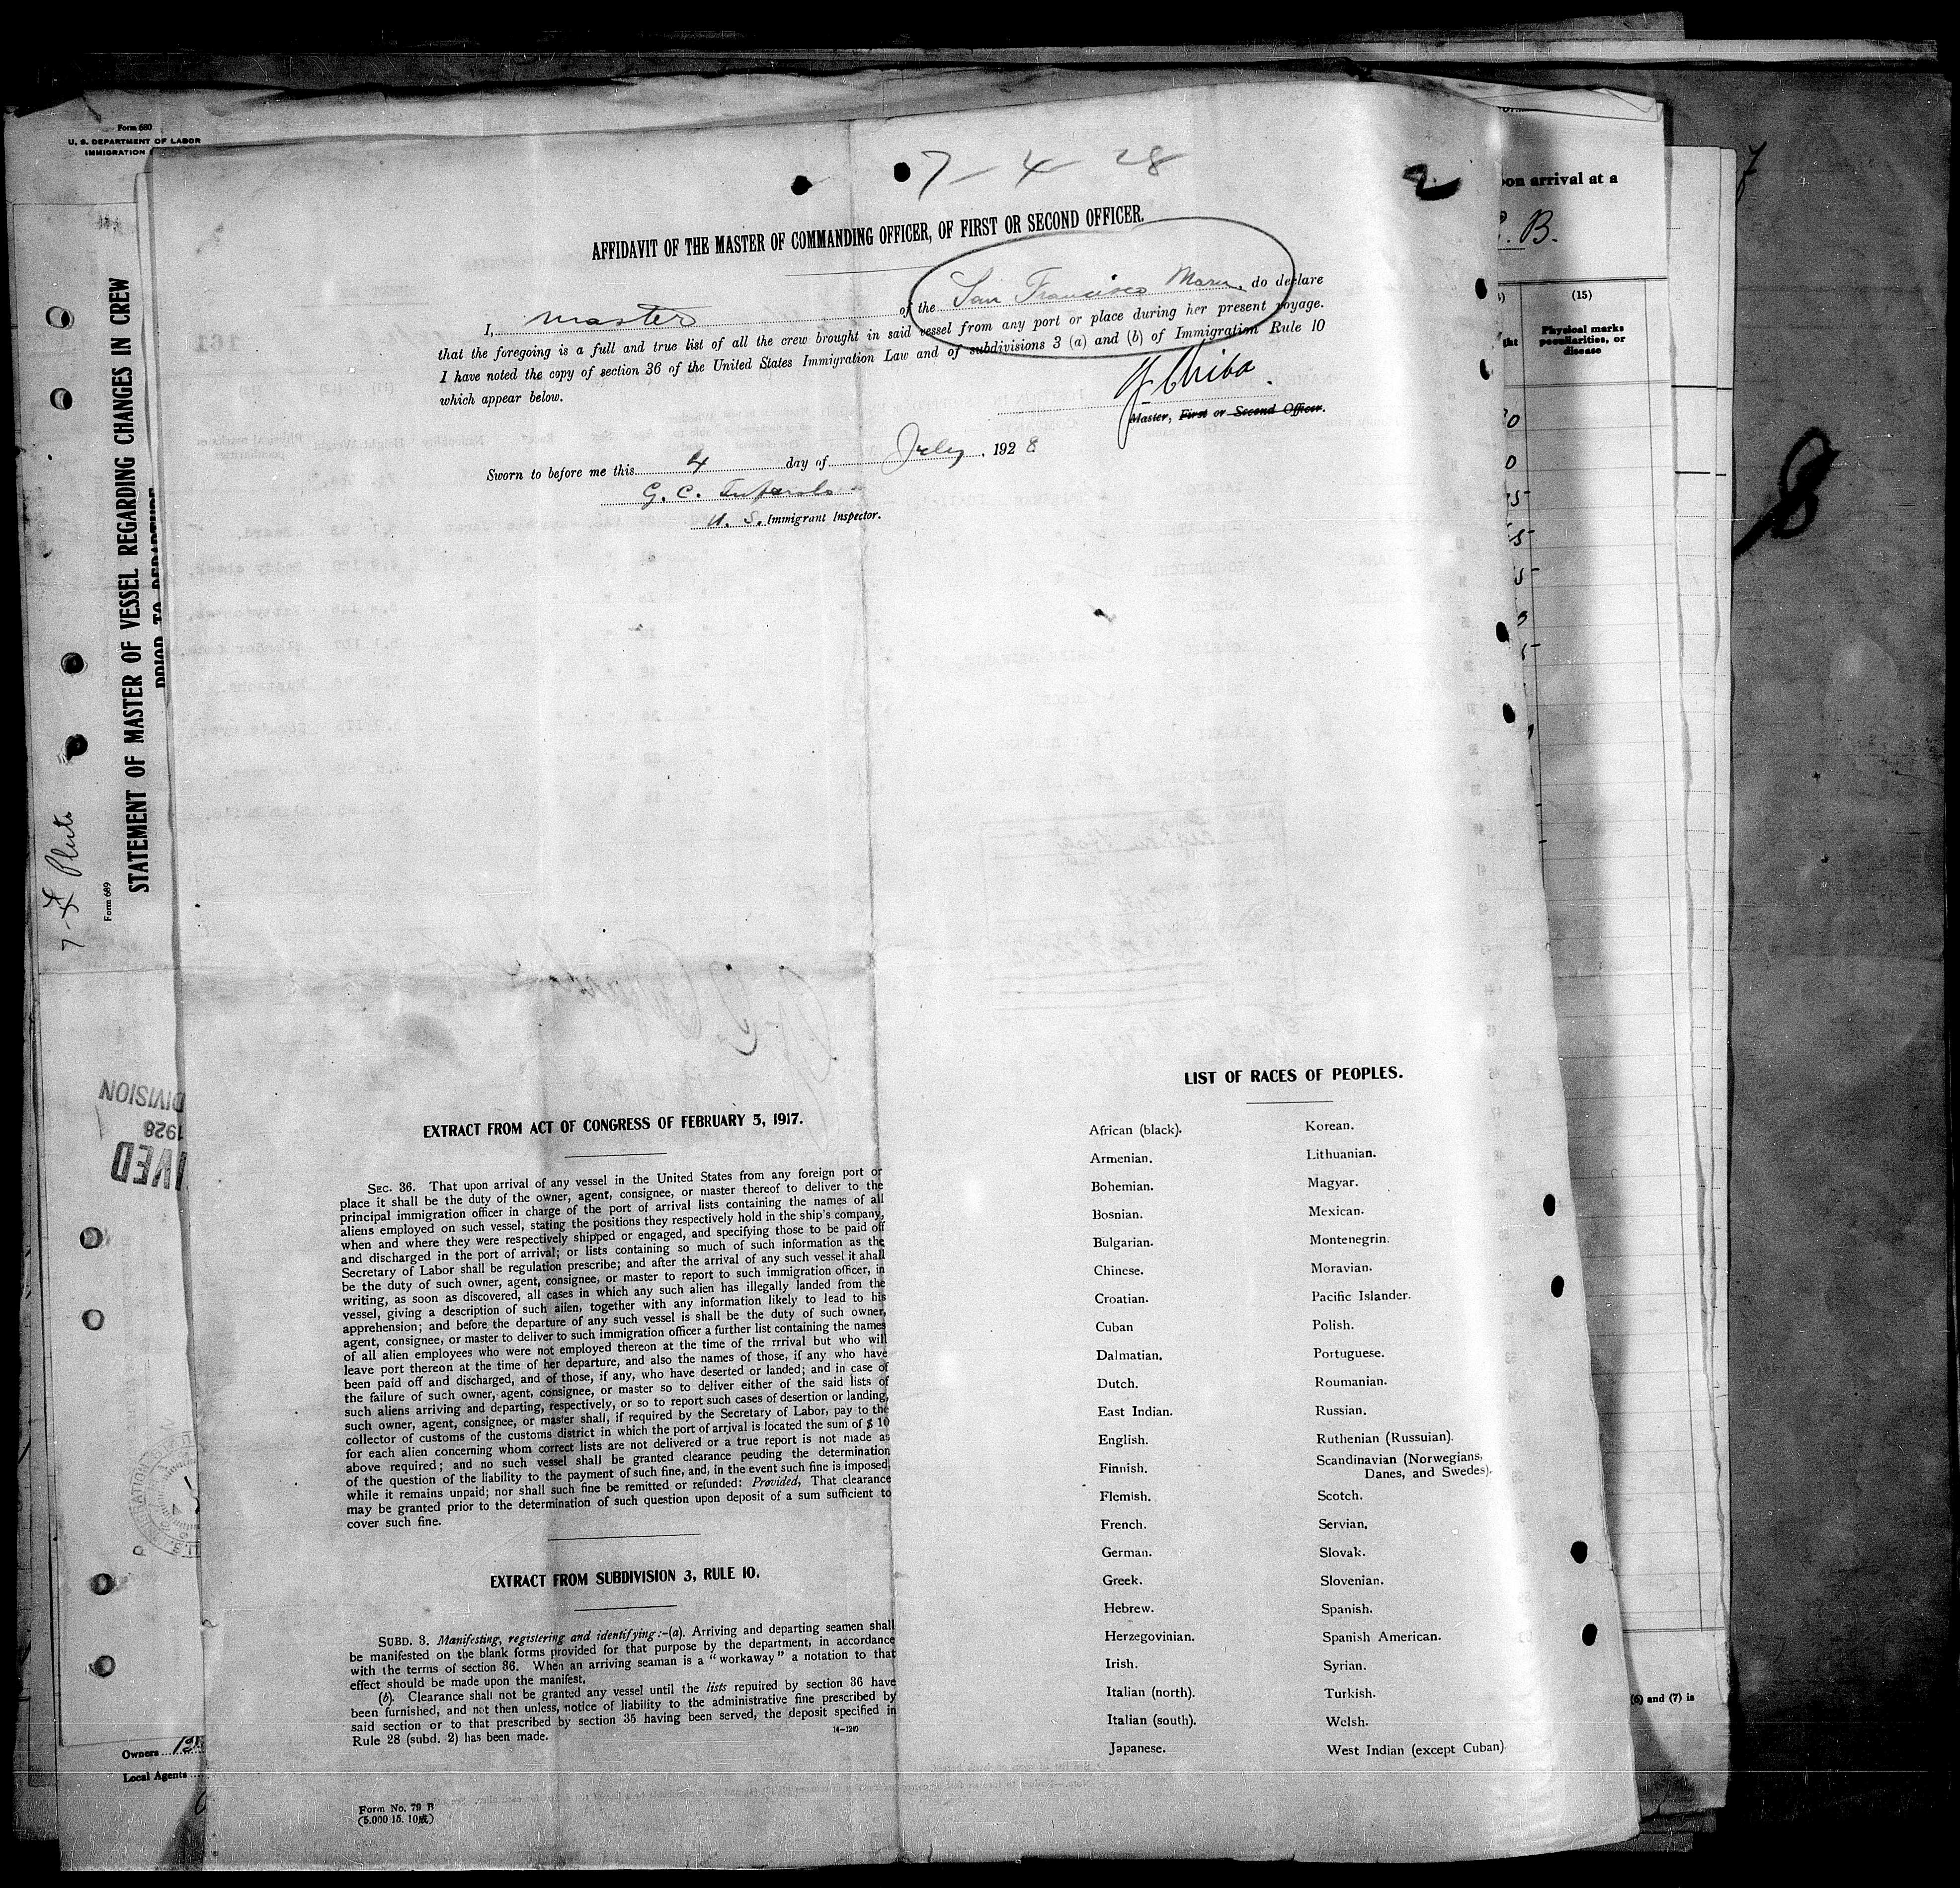 Form 680
U. S. DEPARTMENT OF LABOR
IMMIGRATION
7-4-28
2
AFFIDAVIT OF THE MASTER OF COMMANDING OFFICER, OF FIRST OR SECOND OFFICER.
I, master of the San Francisco Maru, do declare
that the foregoing is a full and true list of all the crew brought in said vessel from any port or place during her present voyage.
I have noted the copy of section 36 of the United States Immigration Law and of subdivisions 3 (a) and (b) of Immigration Rule 10
which appear below.
Chiba
Master, First or Second Officer.
Sworn to before me this 4 day of July, 1928
G. C.
U. S. Immigrant Inspector.
EXTRACT FROM ACT OF CONGRESS OF FEBRUARY 5, 1917.
SEC. 36. That upon arrival of any vessel in the United States from any foreign port or
place it shall be the duty of the owner, agent, consignee, or master thereof to deliver to the
principal immigration officer in charge of the port of arrival lists containing the names of all
aliens employed on such vessel, stating the positions they respectively hold in the ship's company,
when and where they were respectively shipped or engaged, and specifying those to be paid off
and discharged in the port of arrival; or lists containing so much of such information as the
Secretary of Labor shall be regulation prescribe; and after the arrival of any such vessel it ahall
be the duty of such owner, agent, consignee, or master to report to such immigration officer, in
writing, as soon as discovered, all cases in which any such alien has illegally landed from the
vessel, giving a description of such alien, together with any information likely to lead to his
apprehension; and before the departure of any such vessel is shall be the duty of such owner,
agent, consignee, or master to deliver to such immigration officer a further list containing the names
of all alien employees who were not employed thereon at the time of the rrrival but who will
leave port thereon at the time of her departure, and also the names of those, if any who have
been paid off and discharged, and of those, if any, who have deserted or landed; and in case of
the failure of such owner, agent, consignee, or master so to deliver either of the said lists of
such aliens arriving and departing, respectively, or so to report such cases of desertion or landing,
such owner, agent, consignee, or master shall, if required by the Secretary of Labor, pay to the
collector of customs of the customs district in which the port of arrival is located the sum of $ 10
for each alien concerning whom correct lists are not delivered or a true report is not made as
above required; and no such vessel shall be granted clearance peuding the determination
of the question of the liability to the payment of such fine, and, in the event such fine is imposed,
while it remains unpaid; nor shall such fine be remitted or refunded: Provided, That clearance
may be granted prior to the determination of such question upon deposit of a sum sufficient to
cover such fine.
EXTRACT FROM SUBDIVISION 3, RULE 10.
SUBD. 3. Manifesting, registering and identifying:-(a). Arriving and departing seamen shall
be manifested on the blank forms provided for that purpose by the department, in accordance
with the terms of section 36. When an arriving seaman is a "workaway" a notation to that
effect should be made upon the manifest.
(b). Clearance shall not be granted any vessel until the lists repuired by section 36 have
been furnished, and not then unless, notice of liability to the administrative fine prescribed by
said section or to that prescribed by section 35 having been served, the deposit specified in
Rule 28 (subd. 2) has been made.
14-1240
Form No. 79 B
(5.000 15. 10)
LIST OF RACES OF PEOPLES.
African (black).
Armenian.
Bohemian.
Bosnian.
Bulgarian.
Chinese.
Croatian.
Cuban
Dalmatian.
Dutch.
East Indian.
English.
Finnish.
Flemish.
French.
German.
Greek.
Hebrew.
Herzegovinian.
Irish.
Italian (north).
Italian (south).
Japanese.
Korean.
Lithuanian.
Magyar.
Mexican.
Montenegrin.
Moravian.
Pacific Islander.
Polish.
Portuguese.
Roumanian.
Russian.
Ruthenian (Russuian).
Scandinavian (Norwegians,
Danes, and Swedes).
Scotch.
Servian.
Slovak.
Slovenian.
Spanish.
Spanish American.
Syrian.
Turkish.
Welsh.
West Indian (except Cuban).
Form 689
STATEMENT OF MASTER OF VESSEL REGARDING CHANGES IN CREW
PRIOR TO DEPARTURE
DIVISION
1928
IVED
Owners
Local Agents
on arrival at a
B.
(15)
Physical marks
peculiarities, or
disease
(6) and (7) is
8